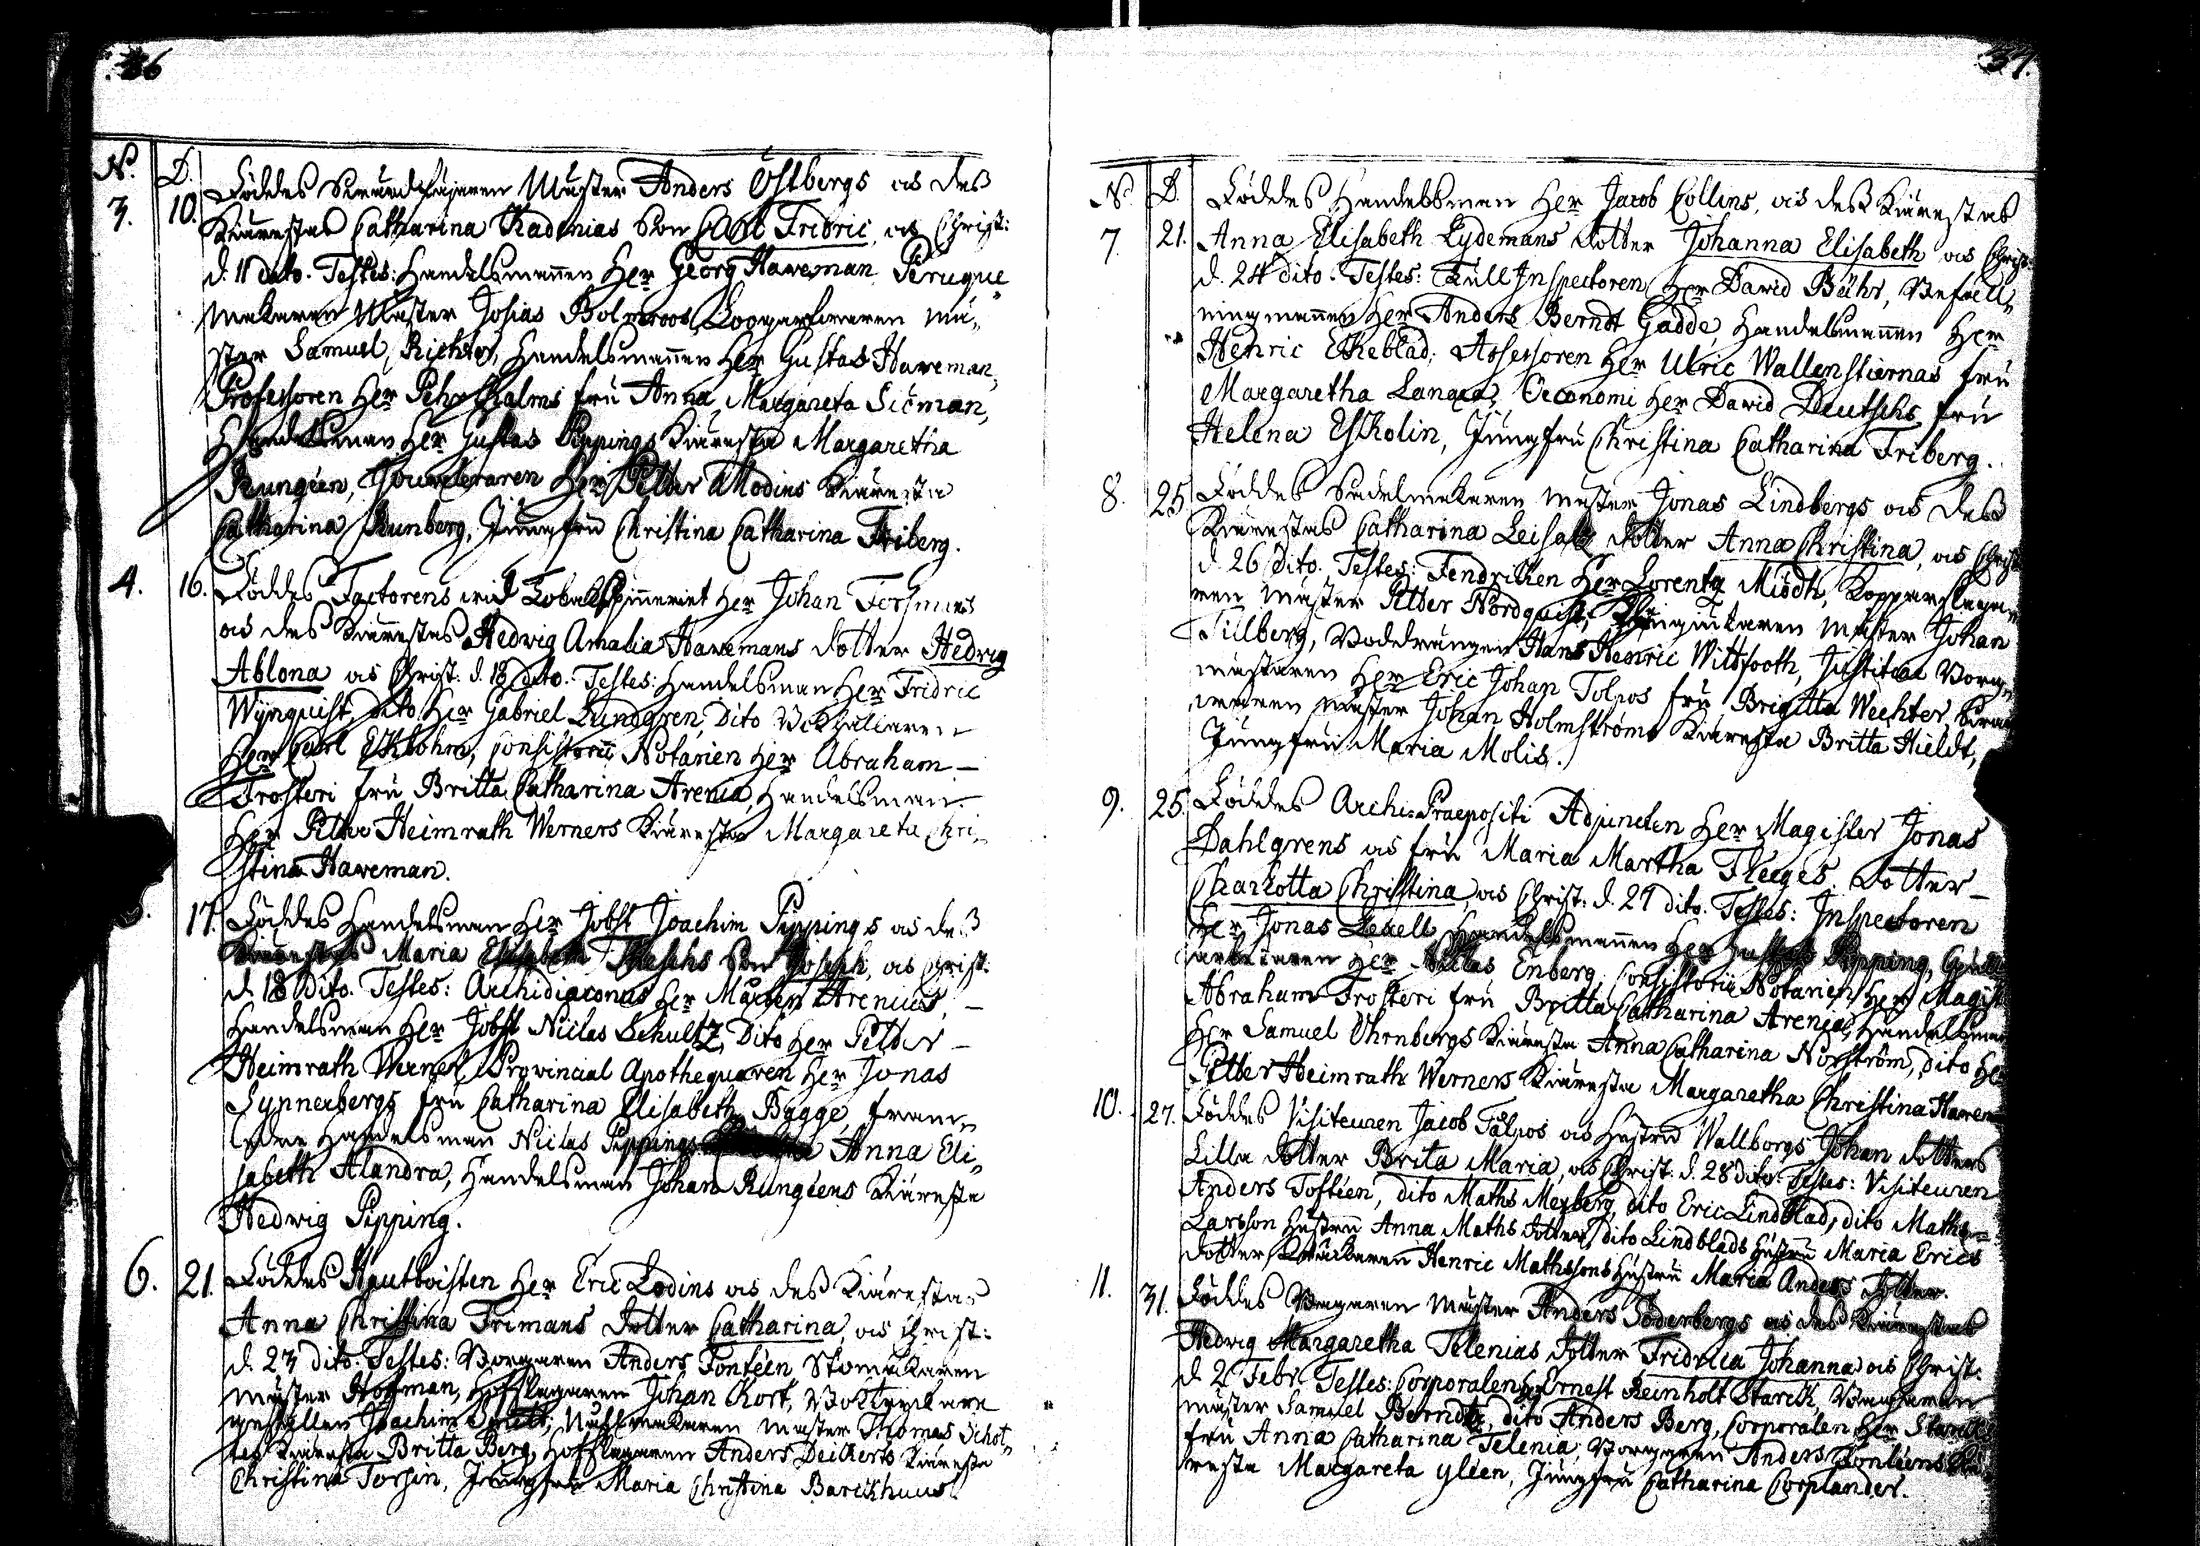 36
N. D.
3. 10. Föddes Skräddaren Mäster Anders Östbergs ock des
Kiärestas Catharina Kadenias Son Carl Fridric, ock Christ:
d. 11 dito. Testes: Handelsmannen Her Georg Haveman, Peruque
makaren Mäster Josias Bolmroos, Loogarfvaren Mä-
ster Samuel Richter, Handelsmannen Her Gustaf Haveman,
Professoren Her Pehr Kalms fru Anna Margareta Siöman,
Handelsman Her Gustaf Pippings Kiäresta Margaretha
Rungéen, Jouveleraren Her Petter Modins Kiäresta
Catharina Runberg, Jungfru Christina Catharina Friberg.
4. 16. Föddes Factorens wid Tobakspinneriet Her Johan Forsmans
ock des Kiärestas Hedvig Amalia Havemans dotter Hedvig
Ablona ock Christ: d. 18 dito. Testes: Handelsman Her Fridric
Wijnquist, dito Her Gabriel Lundgren, Dito Bokhållaren
Her Carl Ekbohm, Consistorii Notarien Her Abraham
Frosteri fru Britta Catharina Arenia, Handelsman
Her Petter Heimrath Werners Kiäresta Margareta Chri-
stina Haveman.
17. Föddes Handelsman Her Jobst Joachim Pippings ock des
Kiärestas Maria Elisabeth Son Joseph, ock Christ:
d. 18 Dito. Testes: Archidiaconus Her Mårten Arenius,
Handelsman Her Jobst Niclas Schultz, Dito Her Petter
Heimrath Werner, Provincial Apothequaren Her Jonas
Synnerbergs fru Catharina Elisabeth Bagge, fram-
ledne Handelsman Niclas Pippings Anna Eli-
sabeth Alandra, Handelsman Johan Rungéens Kiäresta
Hedvig Pipping.
6. 21. Föddes Hautboisten Her Eric Lodins ock des Kiärestas
Anna Christina Frimans dotter Catharina, ock Christ:
d. 23 dito. Testes: Borgaren Anders Fontéen, Skomakaren
Mäster Hoffman, Hofslagaren Johan Kort,
gesällen Joachim makaren Mäster Thomas Schot-
tes Kiäresta Britta Berg, Hofslagaren Anders Deikerts Kiäresta
Christina Torsin, Jungfru Maria Christina Barckhuus.
37.
N. D.
7. 21. Föddes Handelsman Her Jacob Collins, ock des Kiärestas
Anna Elisabeth Lydemans dotter Johanna Elisabeth ock Christ:
d. 24 dito. Testes: Tull Inspectoren Her David Bähr, Befall-
ningsmannen Her Anders Berndt Gadde, Handelsmannen Her
Henric Ekeblad, Assessoren Her Ulric Wallenstiernas fru
Margaretha Langea, Oeconomi Her David Deutschs fru
Helena Eskolin, Jungfru Christina Catharina Friberg.
8. 25. Föddes Sadelmakaren Mäster Jonas Lindbergs ock des
Kiärestas Catharina Leisatz dotter Anna Christina, ock Christ
d. 26 Dito. Testes: Fendricken Her Lorentz Miödh, Kopparslaga-
ren Mäster Petter Nordquist, Mäster Johan
Tillberg, Bodedrängen Hans Henric Wittfooth, Justitiæ Borg-
mästaren Her Eric Johan Tolpos fru Brigitta Wechter,
Mäster Johan Holmströms Kiäresta Britta Hieldt,
Jungfru Maria Molis.
9. 25. Föddes Archi-Præpositi Adjuncten Her Magister Jonas
Dahlgrens ock fru Maria Martha Fleeges dotter
Charlotta Christina, ock Christ: d. 29 dito. Testes: Inspectoren
Her Jonas Lexell, Handelsmannen Her Gustaf Pipping, Gull-
arbetaren Her Niclas Enberg, Consistorii Notarien Her Magist
Abraham Frosteri fru Britta Catharina Arenia, Handelsman
Her Samuel Öhrnbergs Kiäresta Anna Catharina Norström, dito Her
Petter Heimrath Werners Kiäresta Margaretha Christina Havem
10. 27. Föddes Visiteuren Jacob Tålpos ock Hustru Wallborgs Johan dotters
Lilla dotter Brita Maria, ock Christ: d. 28 dito. Testes: Visiteuren
Anders Toftéen, dito Maths Mexberg, dito Eric Lindblad, dito Maths
Larsson Hustru Anna Maths dotter, dito Lindblads Hustru Maria Erics
dotter, Henric Mathssons Hustru Maria Anders dotter.
11. 31. Föddes Mäster Anders Söderbergs ock des Kiärestas
Hedvig Margaretha Telenias dotter Fridrica Johanna ock Christ:
d. 2 Febr. Testes: Corporalen Her Ernest Reinholt Starck,
Mäster Samuel Berndtz, dito Anders Berg, Corporalen Her Starcks
fru Anna Catharina Telenia, Borgaren Anders Fontéens Kiä-
resta Margareta Yléen, Jungfru Catharina Corplander.